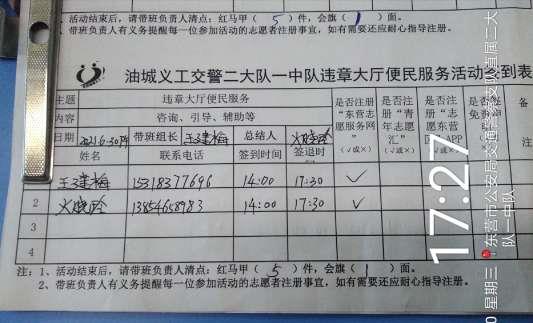 、活动结束后，请带班负责人清点：红马甲（ 5 ）件，会旗（ 1 ）面。
、带班负责人有义务提醒每一位参加活动的志愿者注册事宜，如有需要还应耐心指导注册。
油城义工交警二大队一中队违章大厅便民服务活动 到表
主题 违章大厅便民服务 是否注册“东营志愿服务网”（√或×） 是否注册“青年志愿汇”（√或×） 是否注册“志愿东营”APP（√或×） 备注
内容 咨询、引导、辅助等
日期 2021.6.30 带班组长 王建梅 总结人 火晓玲
姓名 联系电话 签到时间 签退时间
王建梅 15318377696 14:00 17:30 √
2 火晓玲 13854658983 14:00 17:30 √
3
4
注：1、活动结束后，请带班负责人清点：红马甲（ 5 ）件，会旗（ 1 ）面。
2、带班负责人有义务提醒每一位参加活动的志愿者注册事宜，如有需要还应耐心指导注册。
17:27
0 星期三
东营市公安局交通警察支队直属二大队一中队